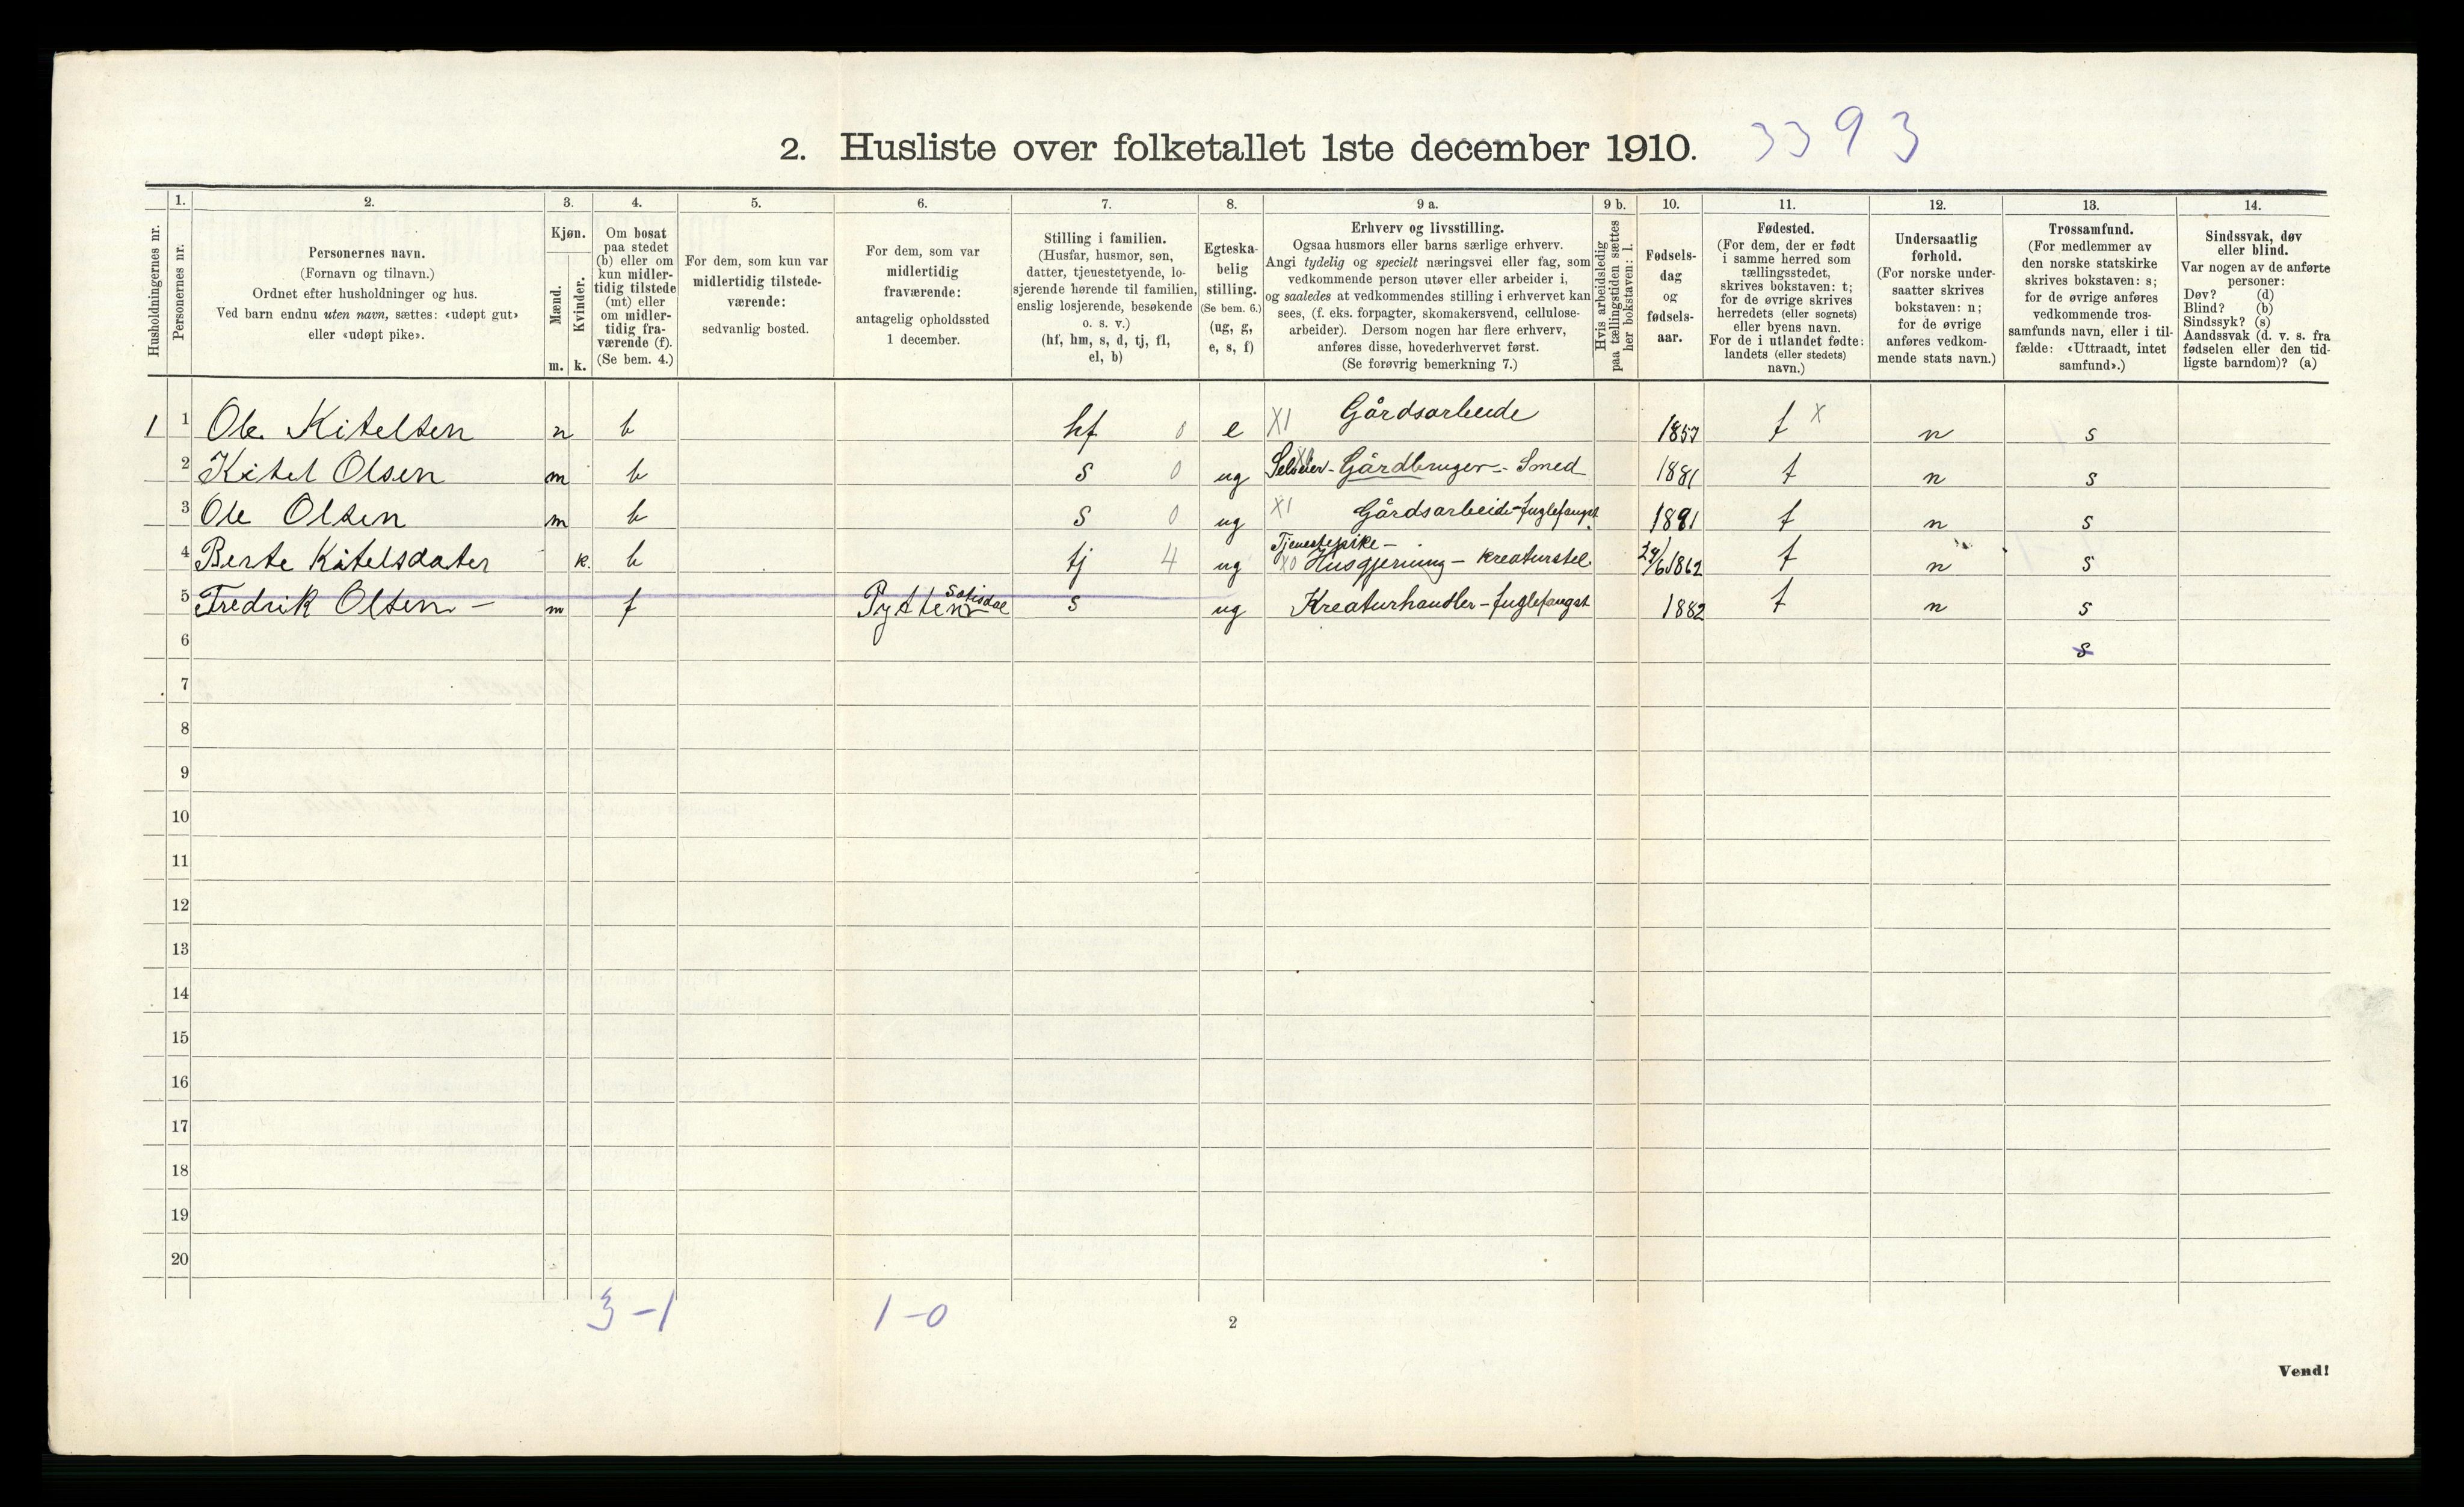 2. Husliste over folketallet 1ste december 1910. 3393
Husholdningernes nr.
1.
Personernes nr.
2.
Personernes navn.
(Fornavn og tilnavn.)
Ordnet efter husholdninger og hus.
Ved barn endnu uten navn, sættes: «udøpt gut»
eller «udøpt pike».
3.
Kjøn.
Mænd.
Kvinder.
m. k.
4.
Om bosat
paa stedet
(b) eller om
kun midler-
tidig tilstede
(mt) eller
om midler-
tidig fra-
værende (f).
(Se bem. 4.)
5.
For dem, som kun var
midlertidig tilstede-
værende:
sedvanlig bosted.
6.
For dem, som var
midlertidig
fraværende:
antagelig opholdssted
1 december.
7.
Stilling i familien.
(Husfar, husmor, søn,
datter, tjenestetyende, lo-
sjerende hørende til familien,
enslig losjerende, besøkende
o. s. v.)
(hf, hm, s, d, tj, fl,
el, b)
8.
Egteska-
belig
stilling.
(Se bem. 6.)
(ug, g,
e, s, f)
9 a.
Erhverv og livsstilling.
Ogsaa husmors eller barns særlige erhverv.
Angi tydelig og specielt næringsvei eller fag, som
vedkommende person utøver eller arbeider i,
og saaledes at vedkommendes stilling i erhvervet kan
sees, (f. eks. forpagter, skomakersvend, cellulose-
arbeider). Dersom nogen har flere erhverv,
anføres disse, hovederhvervet først.
(Se forøvrig bemerkning 7.)
9 b.
Hvis arbeidsledig
paa tællingstiden sættes
her bokstaven: l.
10.
Fødsels-
dag
og
fødsels-
aar.
11.
Fødested.
(For dem, der er født
i samme herred som
tællingsstedet,
skrives bokstaven: t;
for de øvrige skrives
herredets (eller sognets)
eller byens navn.
For de i utlandet fødte:
landets (eller stedets)
navn.)
12.
Undersaatlig
forhold.
(For norske under-
saatter skrives
bokstaven: n;
for de øvrige
anføres vedkom-
mende stats navn.)
13.
Trossamfund.
(For medlemmer av
den norske statskirke
skrives bokstaven: s;
for de øvrige anføres
vedkommende tros-
samfunds navn, eller i til-
fælde: «Uttraadt, intet
samfund».)
14.
Sindssvak, døv
eller blind.
Var nogen av de anførte
personer:
Døv? (d)
Blind? (b)
Sindssyk? (s)
Aandssvak (d. v. s. fra
fødselen eller den tid-
ligste barndom)? (a)
1 1 Ole Kitelsen m b hf 0 e X1 Gårdsarbeide 1857 t X n s
2 Kitel Olsen m b s 0 ug Selveier - Gårdbruger - Smed 1881 t n s
3 Ole Olsen m b s 0 ug X1 Gårdsarbeide - fuglefangst 1891 t n s
4 Berte Kitelsdater k. b tj 4 ug Tjenestepike - X0 Husgjerning - kreaturstel 1862 t n s
5 Fredrik Olsen - m f Pytten Sætisdal s ug Kreaturhandler - fuglefangst 1882 t n s
6 s
7
8
9
10
11
12
13
14
15
16
17
18
19
20
3-1 1-0
2
Vend!